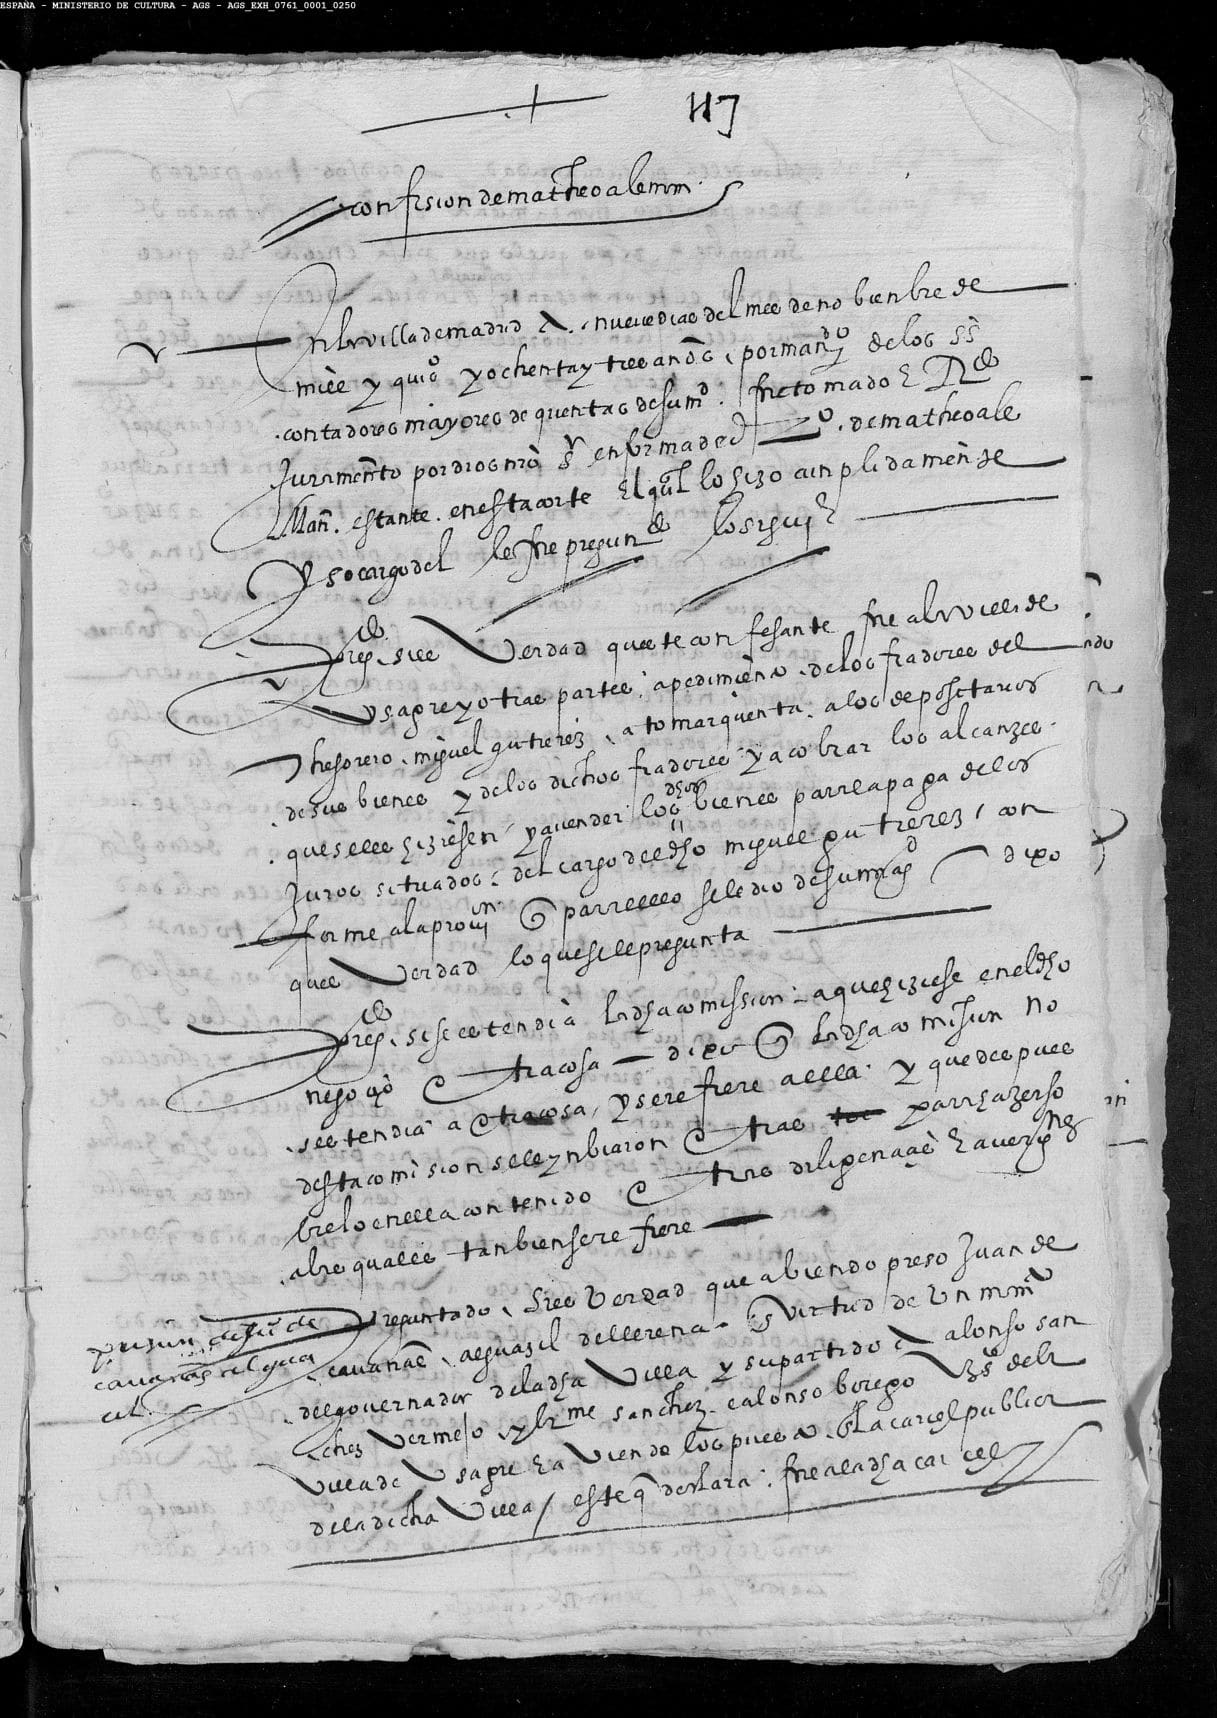 ESPAÑA - MINISTERIO DE CULTURA - AGS - AGS_EXH_0761_0001_0250
117
confision de matheo aleman
En la villa de madrid a nueve dias del mes de nobienbre de
mill y quiº y ochenta y tres años, por mando de los ss
contadores mayores de quentas de su md. fue tomado e Rdo
Juramento por dios nro sr en forma de dro. de matheo ale
Man. estante. en esta corte el qual lo hizo cunplidamente
y so cargo del le fue preguntdo lo siguie
pregdo. si es Verdad queste confesante fue a la villa de
Usagre y otras partes, a pedimiento de los fiadores del
thesorero, miguel gutierrez, a tomar quenta. a los depositarios
de sus bienes y de los dichos fiadores y a cobrar los alcanzes
que se les hiziesen, y a vender los dhos bienes para la paga de los
Juros situados. del cargo del dho miguel gutierrez, con
forme a la provin q para ello se le dio de su magd dixo
ques Verdad lo que se le pregunta
pregdo. si se estendia la dha comission. a que hiziese en el dho
negoçio otra cosa - dixo q la dha comision no
se estendia a otra cosa, y se refiere a ella. y que despues
desta comision se le ynbiaron otras para hazer so
bre lo en ella contenido otras diligençias e averigones
a las quales tanbien se refiere
prision de Juº de
cavañas alguaz
cil
Preguntado, si es Verdad que abiendo preso Juan de
cavanas, alguazil de llerena. en virtud de Un mandamº
del governador de la dha Villa y su partido a alonso san
chez vermejo, y bme sanchez. e alonso borrego Vzos de la
Villa de Usagre e aviendolos puesto. en la carcel publica
de la dicha Villa / este q declara. fue a la dha carcel